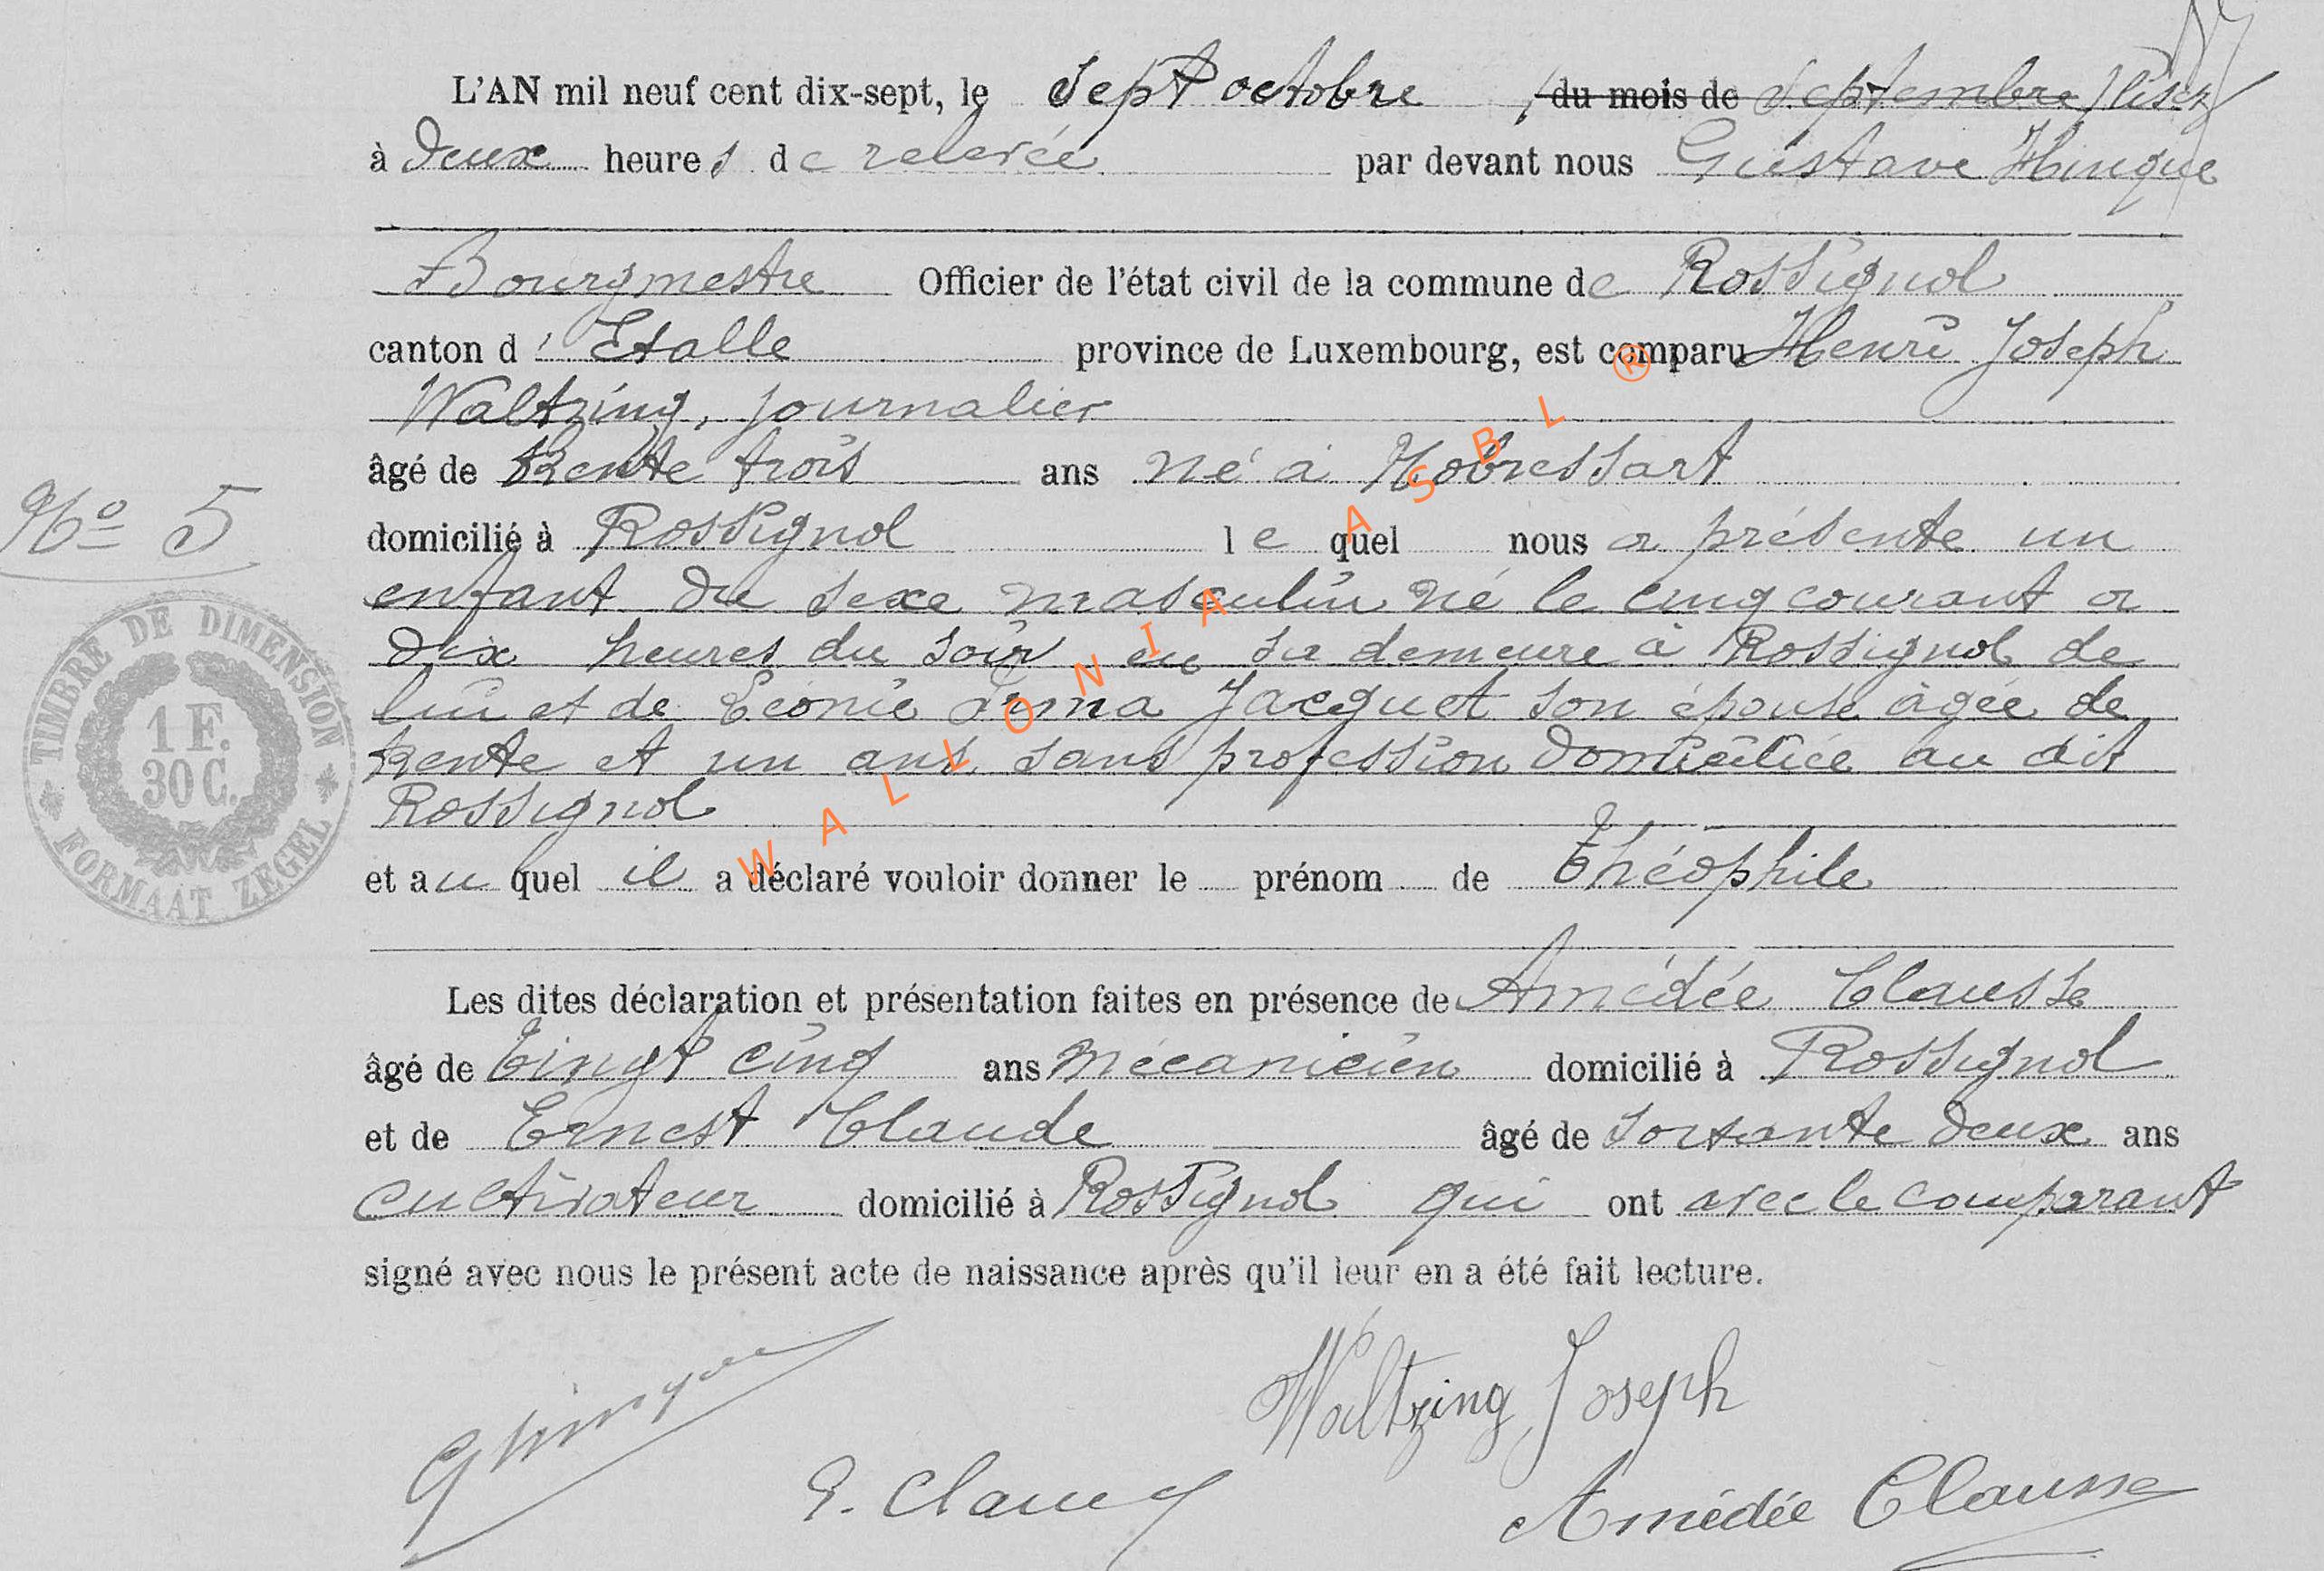 L'AN mil neuf cent dix-sept, le sept octobre, du mois de septembre
à deux heures de relevée par devant nous Gustave Hinque
Bourgmestre Officier de l'état civil de la commune de Rossignol
canton d' Etalle province de Luxembourg, est comparu Henri Joseph
Waltzing, journalier
âgé de trente trois ans né à
domicilié à Rossignol le quel nous a présenté un
enfant du sexe masculin né le cinq courant a
dix heures du soir en sa demeure à Rossignol de
lui et de Léonie Jacquet son épouse âgée de
trente et un ans sans profession domiciliée au dit
Rossignol
N° 5
TIMBRE DE DIMENSION
1 F.
30 C.
FORMAAT ZEGEL
et au quel il a déclaré vouloir donner le prénom de Théophile
Les dites déclaration et présentation faites en présence de Amédée Clausse
âgé de vingt cinq ans mécanicien domicilié à Rossignol
et de Ernest Claude âgé de soixante deux ans
cultivateur domicilié à Rossignol qui ont avec le comparant
signé avec nous le présent acte de naissance après qu'il leur en a été fait lecture.
GHinque
Waltzing Joseph
E. Claude
Amédée Clausse
WALLONIA ASBL ®